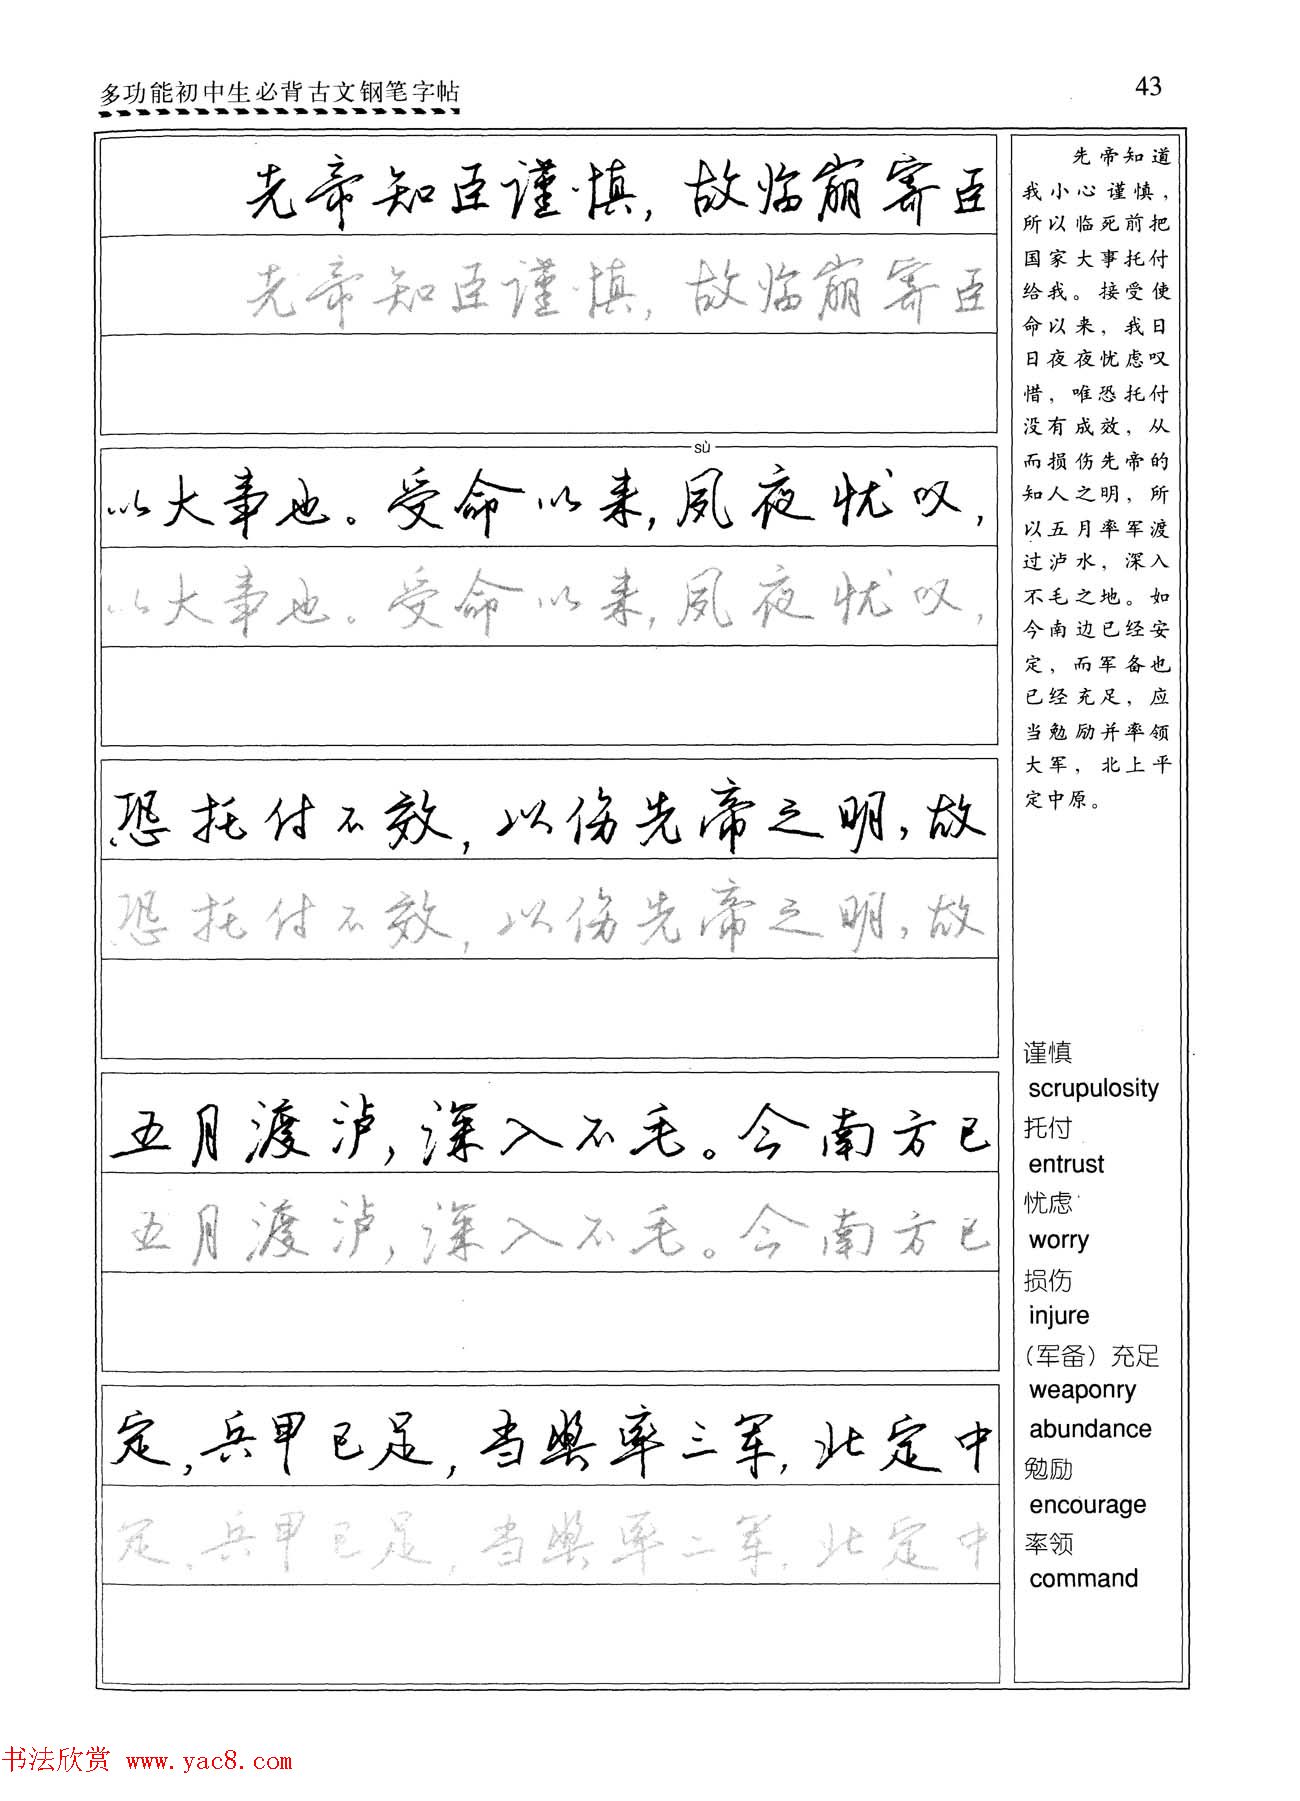 多功能初中生必背古文钢笔字帖
43
先帝知臣谨慎，故临崩寄臣
先帝知臣谨慎，故临崩寄臣
sù
以大事也。受命以来，夙夜忧叹，
以大事也。受命以来，夙夜忧叹，
恐托付不效，以伤先帝之明，故
恐托付不效，以伤先帝之明，故
五月渡泸，深入不毛。今南方已
五月渡泸，深入不毛。今南方已
定，兵甲已足，当奖率三军，北定中
定，兵甲已足，当奖率三军，北定中
先帝知道
我小心谨慎，
所以临死前把
国家大事托付
给我。接受使
命以来，我日
日夜夜忧虑叹
惜，唯恐托付
没有成效，从
而损伤先帝的
知人之明，所
以五月率军渡
过泸水，深入
不毛之地。如
今南边已经安
定，而军备也
已经充足，应
当勉励并率领
大军，北上平
定中原。
谨慎
scrupulosity
托付
entrust
忧虑
worry
损伤
injure
（军备）充足
weaponry
abundance
勉励
encourage
率领
command
书法欣赏 www.yac8.com